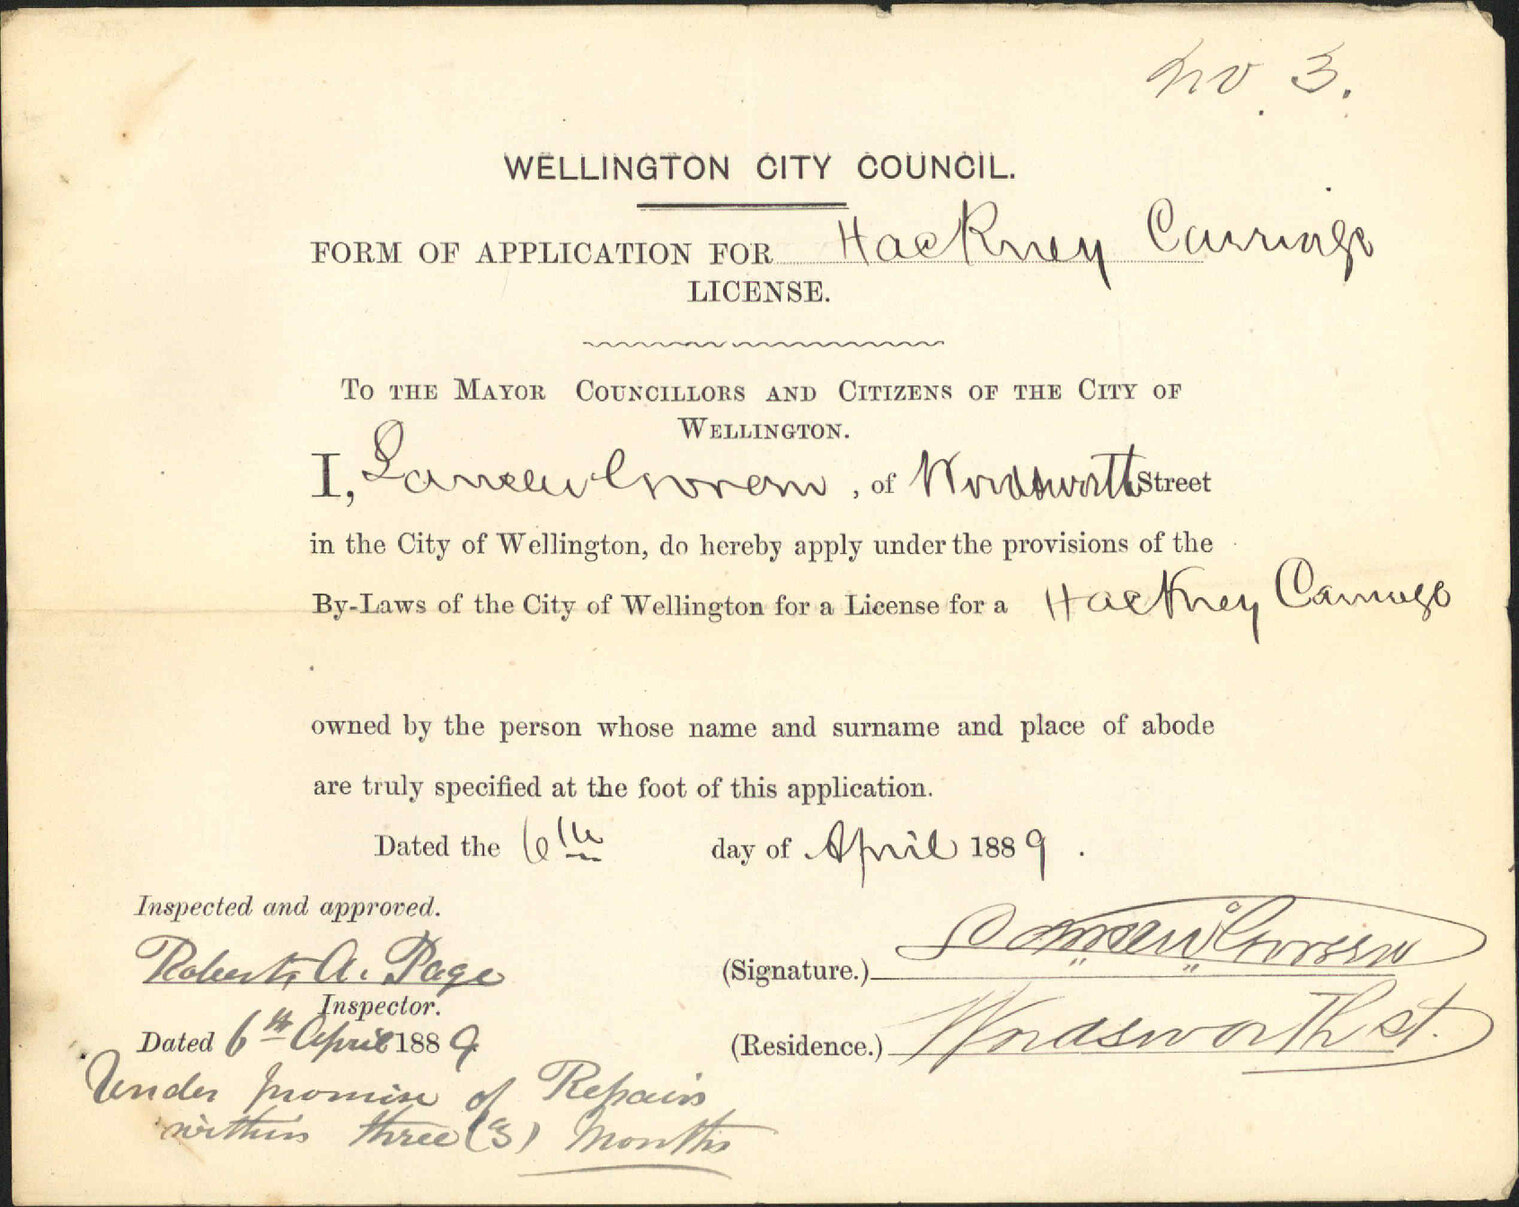 No. 3.
WELLINGTON CITY COUNCIL.
FORM OF APPLICATION FOR Hackney Carriage
LICENSE.
To the Mayor Councillors and Citizens of the City of
Wellington.
I, , of Wordsworth Street
in the City of Wellington, do hereby apply under the provisions of the
By-Laws of the City of Wellington for a License for a Hackney Carriage
owned by the person whose name and surname and place of abode
are truly specified at the foot of this application.
Dated the 6th day of April 1889.
Inspected and approved.
Robert A. Page
(Signature.)
Inspector.
Dated 6th April 1889
(Residence.) Wordsworth St.
Under promise of Repairs
within three (3) Months